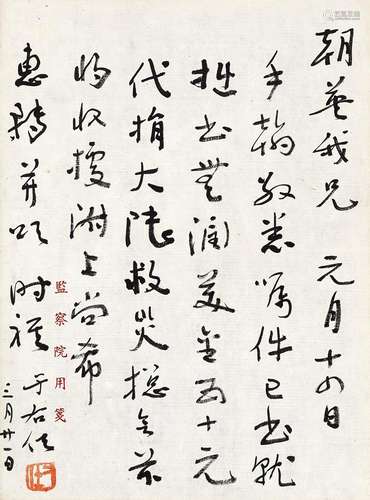 朝英我兄 元月十四日
手翰敬悉嘱件已书就
拙书潤美金五十元
代捐大陸救災總会兹
将收據附上尚希
惠詧并頌 时祺
于右任
三月廿一日
監察院用箋